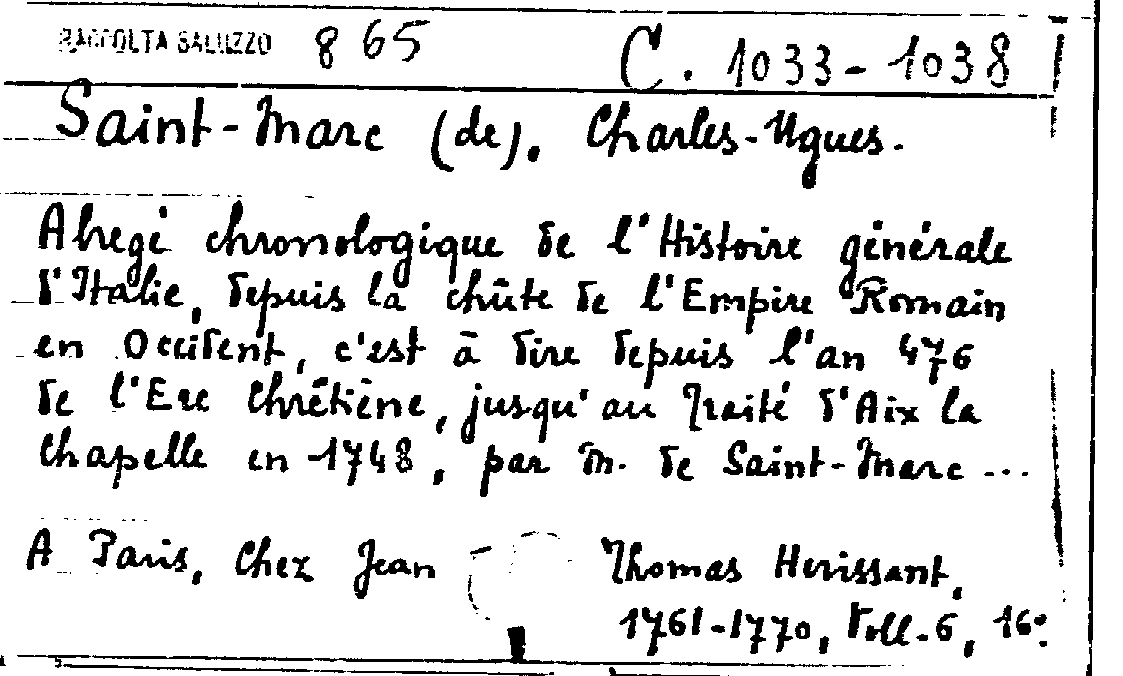 RACCOLTA SALUZZO 865 C. 1033-1038
Saint-Marc (de). Charles-Ugues.
Abregé chronologique de l'Histoire générale
d'Italie, depuis la chûte de l'Empire Romain
en Occident, c'est à dire depuis l'an 476
de l'Ere Chrêtiène, jusqu'au Traité d'Aix la
Chapelle en 1748, par M. de Saint-Marc ...
A Paris, Chez Jean Thomas Herissant,
1761-1770, Voll. 6, 16°.